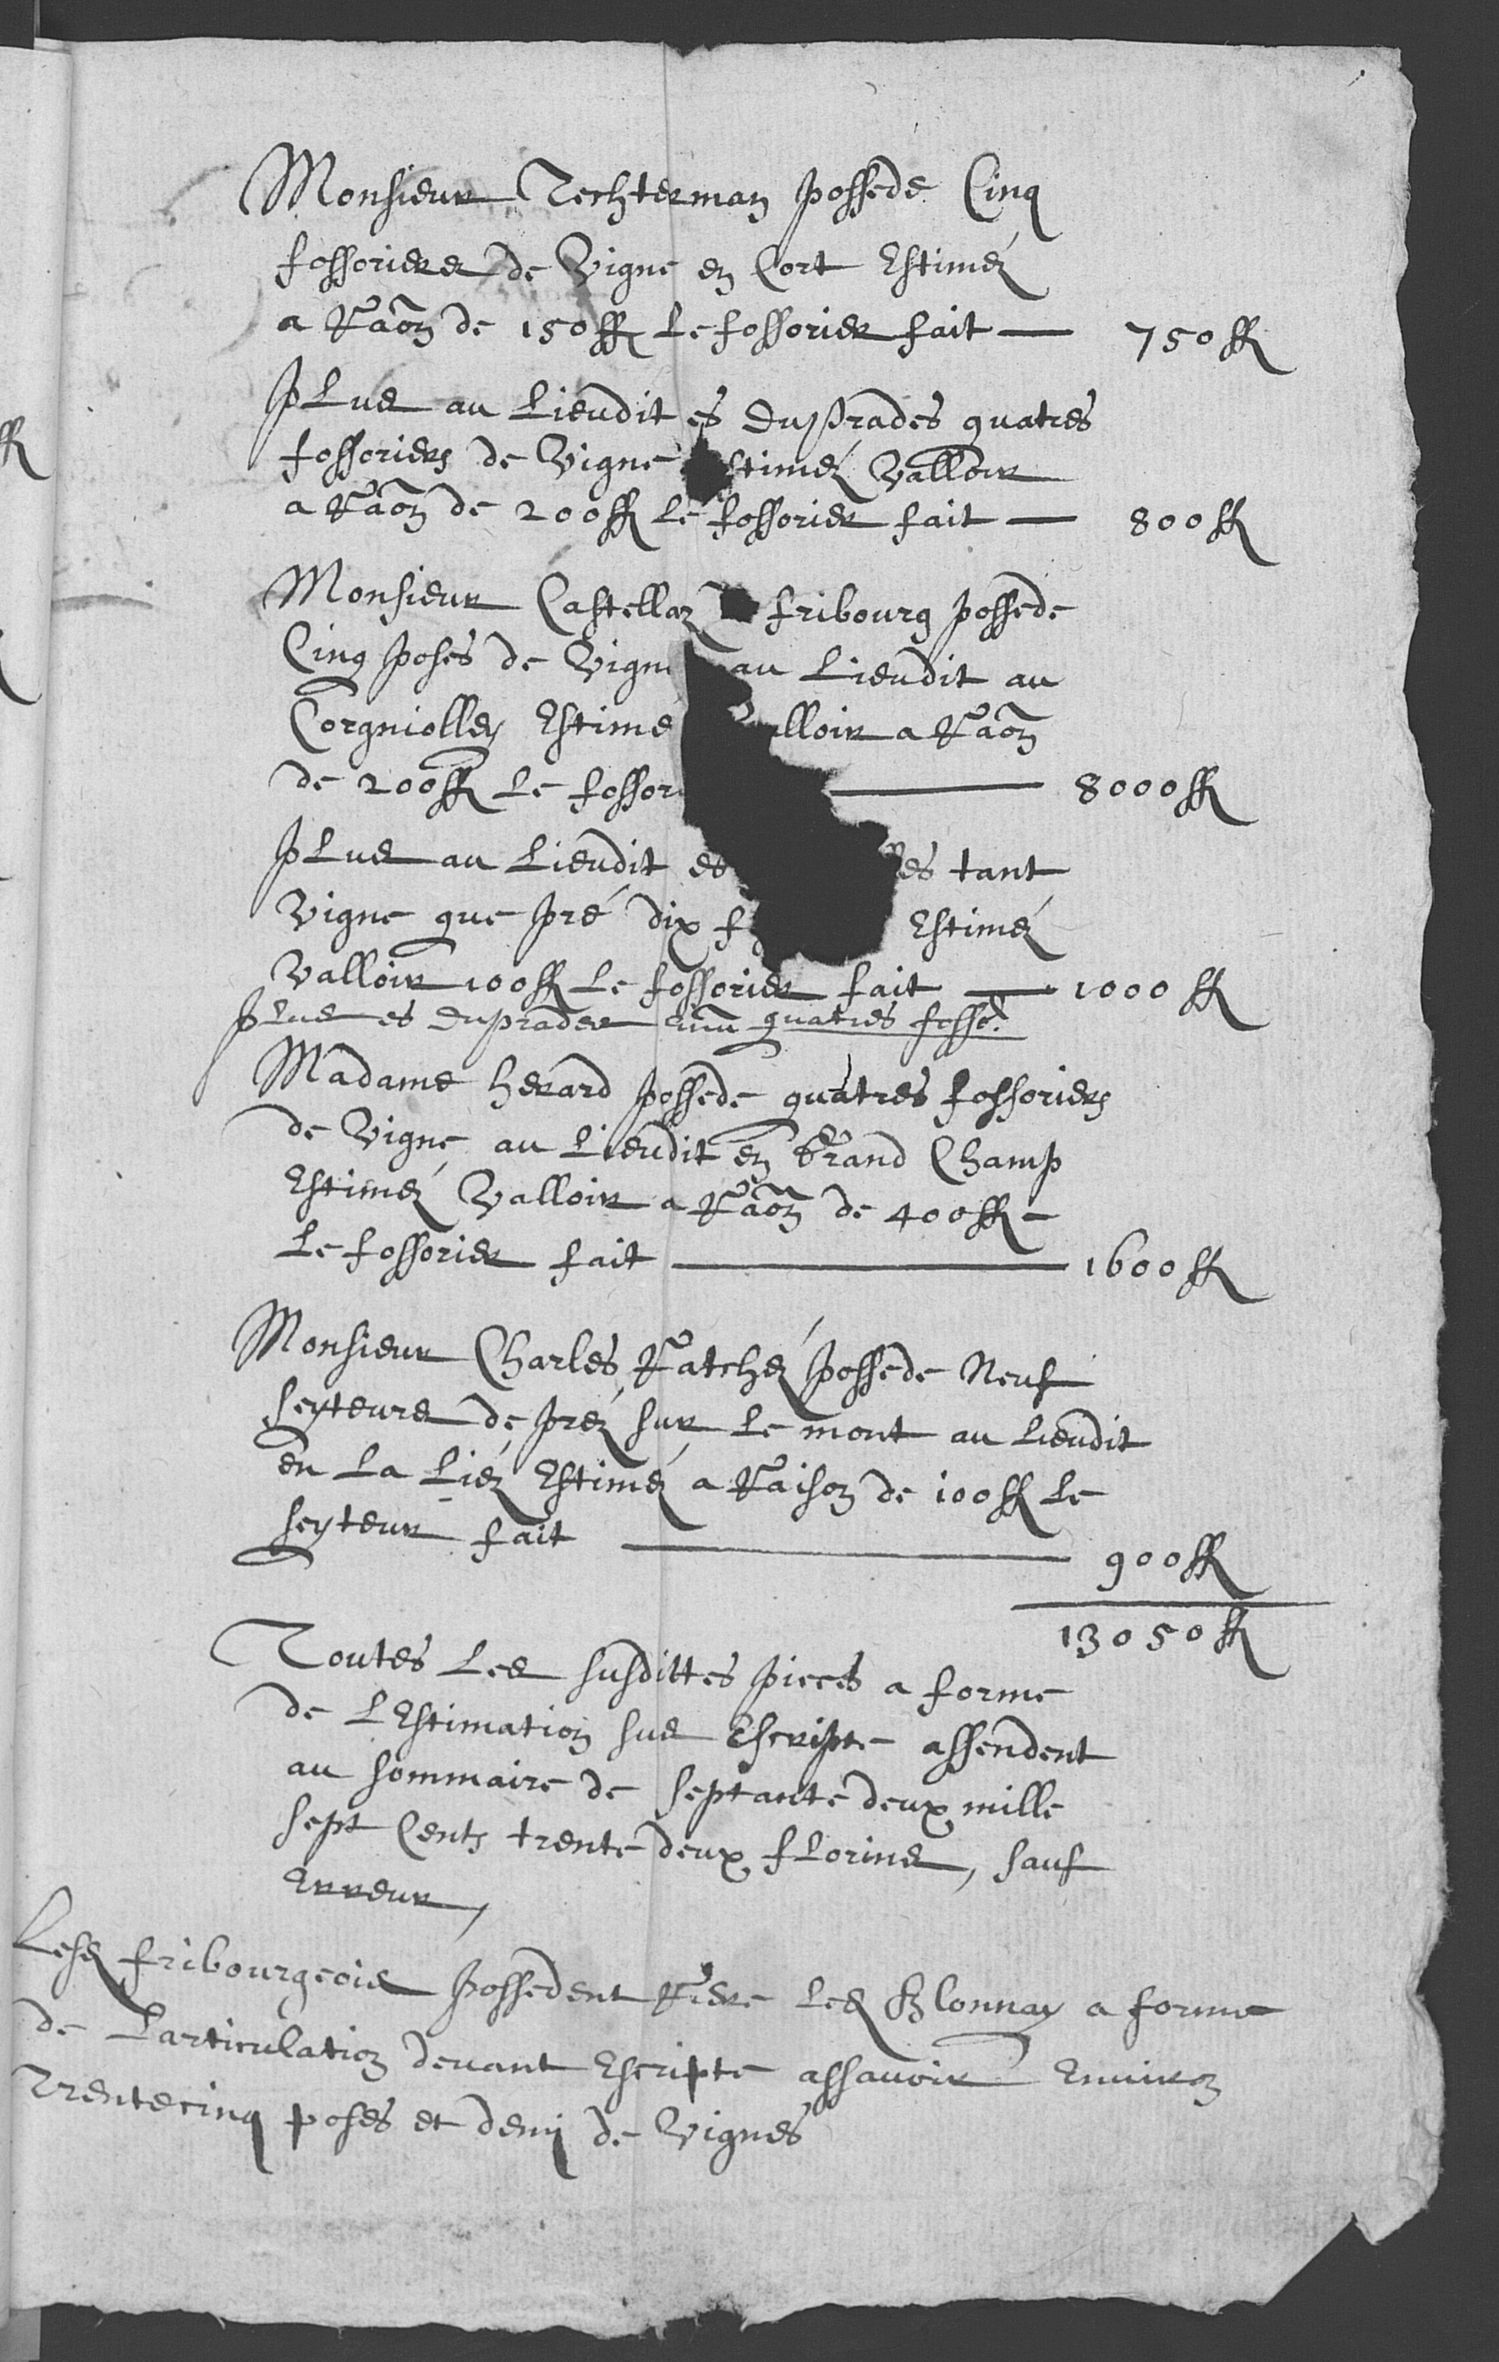 Monsieur Techterman possede Cinq
fossoriers de Vigne en Cort Estimé
a Raõn de 150 ff le fossorier fait — 750 ff
Plus au Lieudit es Duprades quatres
fossoriers de Vigne stiméz Valloir
a Raõn de 200 ff le fossorier fait — 800 ff
Monsieur Castellaz fribourg possede
Cinq poses de Vign au Lieudit au
Corgniolley Estimé alloir a Raõn
de 200 ff le fossor — 8000 ff
Plus au Lieudit es es tant
Vigne que pré dix f Estiméz
Valloir 100 ff le fossorier fait — 1000 ff
Plus es duprades quatres fosso.
Madame herard possede quatres fossoriers
de Vigne au Lieudit en Grand Champ
Estiméz Valloir a Raõn de 400 ff
le fossorier fait — 1600 ff
Monsieur Charles Ratzhé possede Neuf
seyteurs de préz sur le mont au Lieudit
en La Liéz Estiméz a Raison de 100 ff le
seyteur fait — 900 ff
13050 ff
Toutes les susdittes pieces a forme
de L'Estimation sus Escripte assendent
au sommaire de septante deux mille
sept Cents trente deux florins, sauf
Erreur,
Lesd fribourgeois possedent Riere les Blonnay a forme
de L'articulation devant Escripte assavoir Environ
Trentecinq poses et demj de Vignes